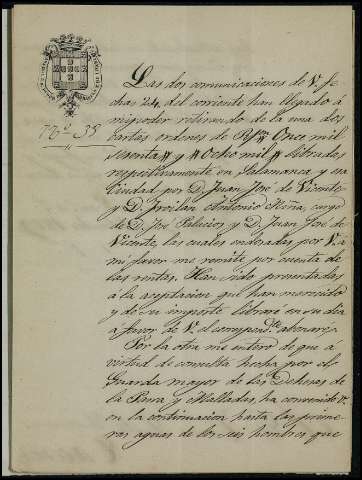 Nº 35
Las dos comunicaciones de V. fe-
chas 24, del corriente han llegado á
mi poder retirendo de la una dos
cartas ordenes de Once mil
Sesenta y Ocho mil libradas
respectivamente en Salamanca y esa
Ciudad por D. Juan José de Vicente
y D. Froilan Antonio cargo
de D. José Palacios y D. Juan José de
Vicente, las cuales endosadas por V. á
mi favor me remite por cuenta de
las rentas. Han sido presentadas
á la aceptacion que han merecido
y de su importe libraré en su dia
á favor de V. el correspondte abonaré.
Por la otra me entero de que á
virtud de consulta hecha por el
Guarda mayor de las Dehesas de
la Pava y Malladas, ha convenido V.
en la continuacion hasta las prime-
ras aguas de los seis hombres que